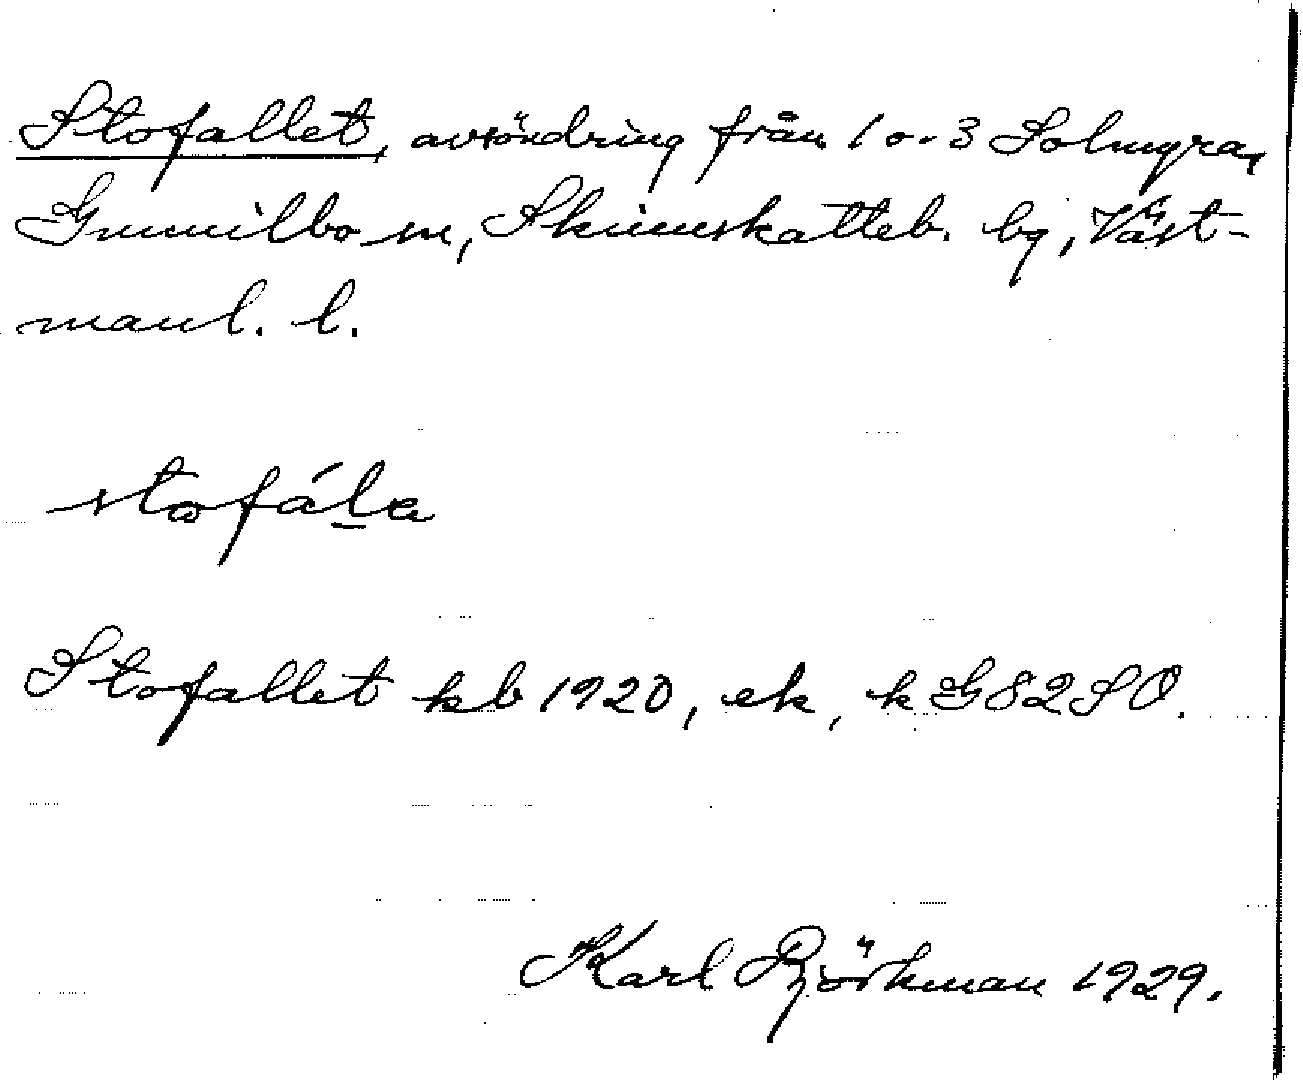 Stofallet, avsöndring från 1 o. 3 Solmyra,
Gunnilbo sn, Skinnskatteb. bg, Väst-
manl. l.
stofála
Stofallet kb 1920, ek, k G82SO.
Karl Björkman 1929.